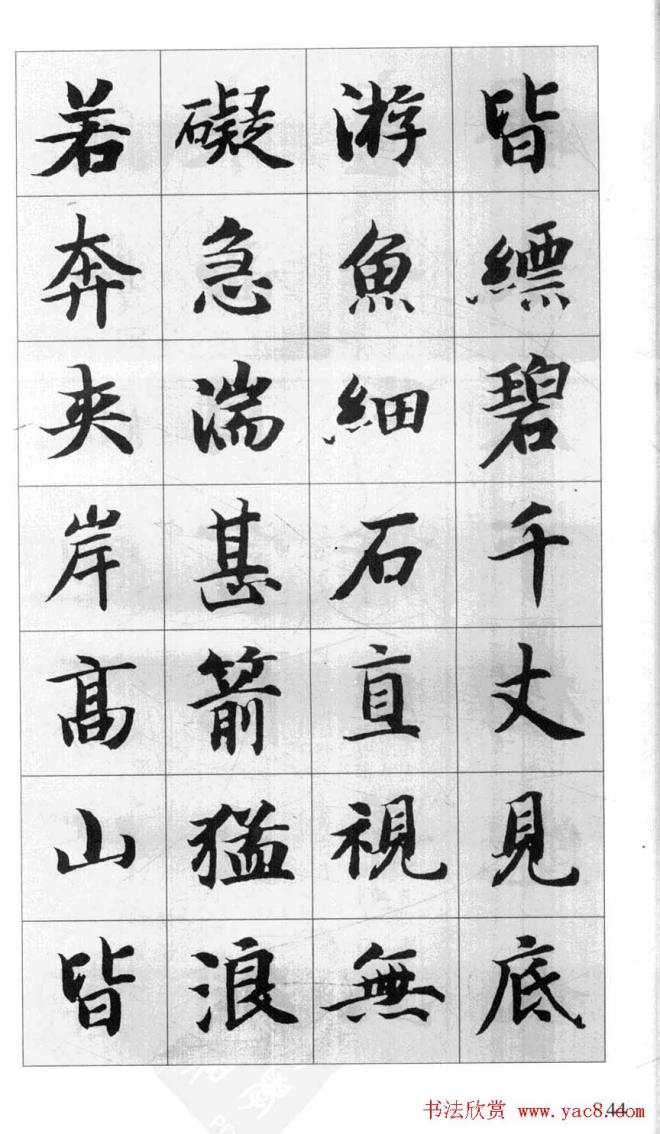 皆縹碧千丈見底
游魚細石直視無
礙急湍甚箭猛浪
若奔夾岸高山皆
44
书法欣赏 www.yac8.com